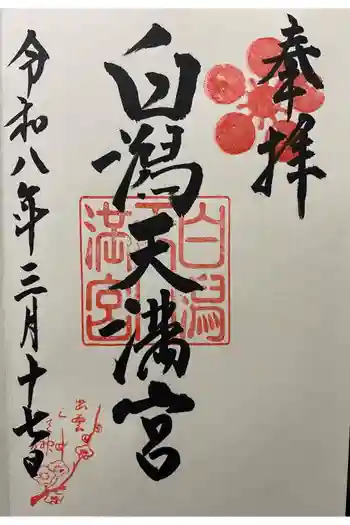 奉拝
白潟天満宮
白潟天満宮
令和八年三月十七日
出雲